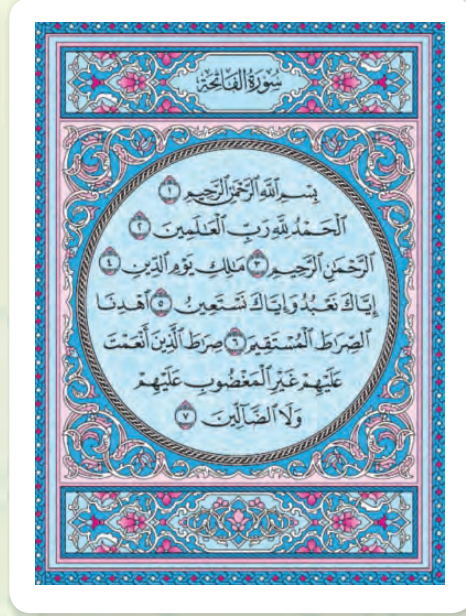 سُورَةُ الْفَاتِحَةِ
بِسْمِ اللَّهِ الرَّحْمَٰنِ الرَّحِيمِ ١
الْحَمْدُ لِلَّهِ رَبِّ الْعَٰلَمِينَ ٢
الرَّحْمَٰنِ الرَّحِيمِ ٣ مَٰلِكِ يَوْمِ الدِّينِ ٤
إِيَّاكَ نَعْبُدُ وَإِيَّاكَ نَسْتَعِينُ ٥ اهْدِنَا
الصِّرَٰطَ الْمُسْتَقِيمَ ٦ صِرَٰطَ الَّذِينَ أَنْعَمْتَ
عَلَيْهِمْ غَيْرِ الْمَغْضُوبِ عَلَيْهِمْ
وَلَا الضَّآلِّينَ ٧